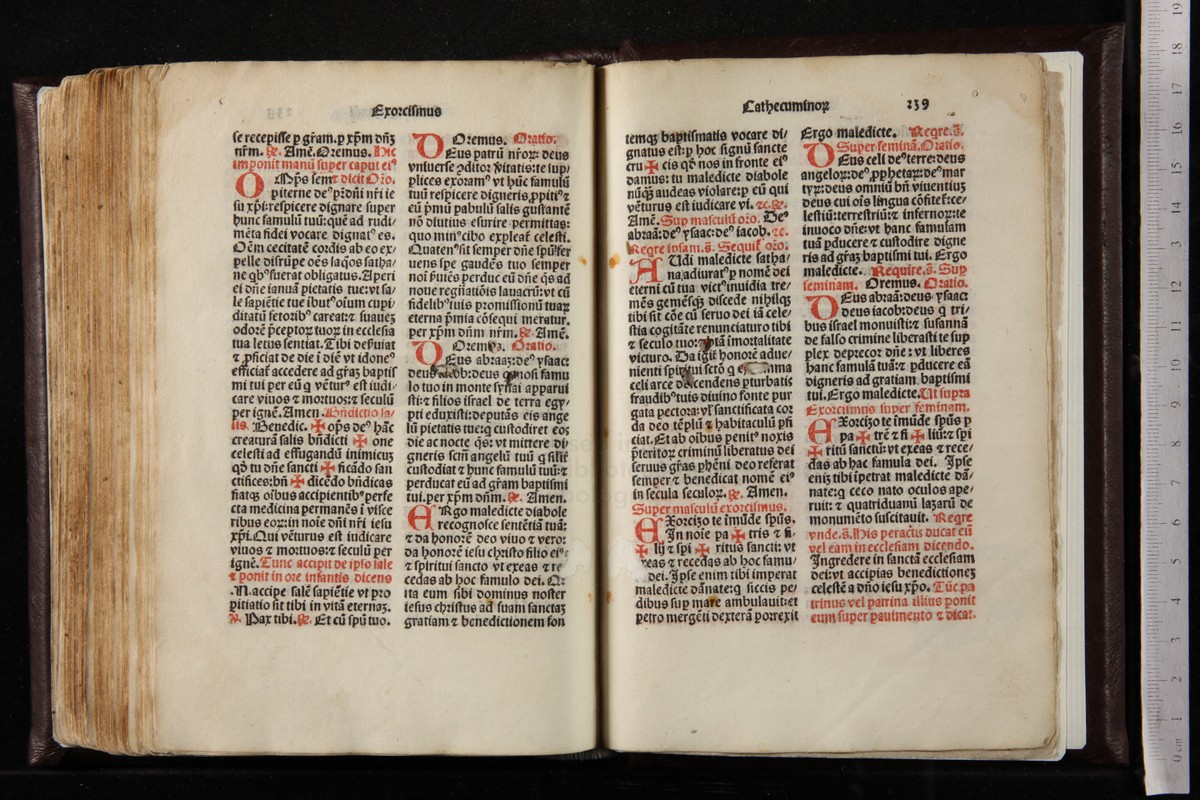 Exorcismus
se recepisse p gr̃am. p xp̃m dñꝫ
nr̃m. ℟. Amẽ. Oremus. Hic
imponit manũ super caput eiꝰ
OMp̃s semꝑ dicit Oro.
piterne deꝰ pr̃ dñi nr̃i ie
su xp̃i: respicere dignare super
hunc famulũ tuũ: quẽ ad rudi-
mẽta fidei vocare dignatꝰ es.
Oẽm cecitatẽ cordis ab eo ex-
pelle disrũpe oẽs laq̃os satha/
ne qbꝰ fuerat obligatus. Aperi
ei dñe ianuã pietatis tue: vt sa-
le sapiẽtie tue ĩbutꝰ oĩum cupi/
ditatũ fetoribꝰ careat: ⁊ suaueꝫ
odorẽ p̃ceptoꝝ tuoꝝ in ecclesia
tua letus sentiat. Tibi deẜuiat
⁊ ꝓficiat de die ĩ diẽ vt idoneꝰ
efficiat̃ accedere ad gr̃aꝫ baptis
mi tui per eũ q vẽturꝰ est iudi-
care viuos ⁊ mortuos: ⁊ seculũ
per ignẽ. Amen. Bñdictio sa/
lis. Benedic. ✠ op̃s deꝰ hãc
creaturã salis bñdicti ✠ one
celesti ad effugandũ inimicus
qȝ tu dñe sancti ✠ ficãdo san
ctifices: bñ ✠ dicẽdo bñdicas
fiatqꝫ oĩbus accipientibꝰ perfe
cta medicina permanẽs ĩ visce
ribus eoꝝ: in noĩe dñi nr̃i iesu
xp̃i. Qui vẽturus est iudicare
viuos ⁊ mortuos: ⁊ seculũ per
ignẽ. Tunc accipit de ipso sale
⁊ ponit in ore infantis dicens
.N. accipe salẽ sapiẽtie vt pro
pitiatio sit tibi in vitã eternaꝫ.
℣. Pax tibi. ℟. Et cũ sp̃u tuo.
Oremus. Oratio.
DEus patrũ nr̃oꝝ: deus
vniuerse ꝯditor v̾itatis: te sup/
plices exoramꝰ vt hũc famulũ
tuũ respicere digneris ꝓpitiꝰ ⁊
eũ p̃mũ pabulũ salis gustantẽ
nõ diutius esurire permittas:
quo minꝰ cibo expleat̃ celesti.
Quatenꝰ sit semper dñe sp̃u fer
uens spe gaudẽs tuo semper
noĩ ẜuiẽs perduc eũ dñe q̃s ad
noue regñatiõis lauacrũ: vt cũ
fidelibꝰ tuis promissionũ tuaꝝ
eterna p̃mia cõsequi mereatur.
per xp̃m dñm nr̃m. ℟. Amẽ.
Oremꝰ. Oratio.
DEus abraaꝫ: deꝰ ysaac:
deus iacob: deus q moisi famu
lo tuo in monte synai apparui
sti: ⁊ filios israel de terra egy/
pti eduxisti: deputãs eis ange
lũ pietatis tue: q custodiret eos
die ac nocte q̃s: vt mittere di/
gneris scm̃ angelũ tuũ q silit̃
custodiat ⁊ hunc famulũ tuũ: ⁊
perducat eũ ad gr̃am baptismi
tui. per xp̃m dñm. ℟. Amen.
ERgo maledicte diabole
recognosce sentẽtiã tuã:
⁊ da honorẽ deo viuo ⁊ vero:
da honorẽ iesu christo filio eiꝰ:
⁊ spiritui sancto vt exeas ⁊ re
cedas ab hoc famulo dei. Qr̃
ita eum sibi dominus noster
iesus christus ad suam sanctaꝫ
gratiam ⁊ benedictionem fon
Cathecuminoꝝ 239
temqꝫ baptismatis vocare di/
gnatus est: ⁊ p hoc signũ sancte
cru ✠ cis qȝ nos in fronte eiꝰ
damus: tu maledicte diabole
nũqꝫ audeas violare: p eũ qui
vẽturus est iudicare vi. ⁊c. ℟.
Amẽ. Sup masculũ oro. Deꝰ
abraã: deꝰ ysaac: deꝰ iacob. ⁊c.
Reqre ipsam. s̃. Sequit̃ oro.
AUdi maledicte satha/
na, adiuratꝰ p nomẽ dei
eterni cũ tua victꝰ inuidia tre/
mẽs gemẽsqꝫ discede nihilqꝫ
tibi sit cõe cũ seruo dei iã cele/
stia cogitãte renunciaturo tibi
⁊ seculo tuo: ⁊ btã ĩmortalitate
victuro. Da igit̃ honorẽ adue/
nienti spiritui sctõ q ex summa
celi arce descendens pturbatis
fraudibꝰ tuis diuino fonte pur
gata pectora: vl̾ sanctificata cor
da deo tẽplũ ⁊ habitaculũ pfi
ciat. Et ab oĩbus penitꝰ noxis
p̃teritoꝝ criminũ liberatus dei
seruus gr̃as phẽni deo referat
semper ⁊ benedicat nomẽ eiꝰ
in secula seculoꝝ. ℟. Amen.
Super masculũ exorcismus.
EXorcizo te ĩmũde sp̃us.
In noĩe pa ✠ tris ⁊ fi-
✠ lij ⁊ spi ✠ ritus sancti: vt
exeas ⁊ recedas ab hoc famu/
lo dei. Ipse enim tibi imperat
maledicte dãnate: q siccis pe/
dibus sup mare ambulauit: et
petro mergẽti dexterã porrexit
Ergo maledicte. Reqre. s̃.
Super feminã. Oratio.
DEus celi deꝰ terre: deus
angeloꝝ: deꝰ ꝓphetaꝝ: deꝰ mar
tyꝝ: deus omniũ bñ viuentiuꝫ
deus cui oĩs lingua cõfitet̃: ce-
lestiũ: terrestriũ: ⁊ infernoꝝ: te
inuoco dñe: vt hanc famulam
tuã pducere ⁊ custodire digne
ris ad gr̃aꝫ baptismi tui. Ergo
maledicte. Require. s̃. Sup
feminam. Oremus. Oratio.
DEus abraã: deus ysaac:
deus iacob: deus q tri-
bus israel monuisti: ⁊ susannã
de falso crimine liberasti te sup
plex deprecor dñe: vt liberes
hanc famulã tuã: ⁊ pducere eã
digneris ad gratiam baptismi
tui. Ergo maledicte. Ut supra
Exorcismus super feminam.
EXorcizo te ĩmũde sp̃us p
pa ✠ trẽ ⁊ fi ✠ liũ: ⁊ spi
✠ ritũ sanctũ: vt exeas ⁊ rece/
das ab hac famula dei. Ipse
eniꝫ tibi ĩpetrat maledicte dã/
nate: q ceco nato oculos ape/
ruit: ⁊ quatriduanũ lazarũ de
monumẽto suscitauit. Reqre
vnde. s̃. His peractis ducat eũ
vel eam in ecclesiam dicendo.
Ingredere in sanctã ecclesiam
dei: vt accipias benedictioneꝫ
celestẽ a dño iesu xp̃o. Tũc pa
trinus vel patrina illius ponit
eum super pauimento ⁊ dicat.